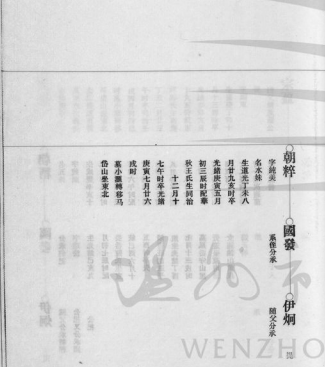 朝粹
字純美
名水妹
生道光丁未八
月廿九亥时卒
光緒庚寅五月
初三辰时配華
秋王氏生同治
十二月十
七午时卒光緒
庚寅七月廿六
戌时
墓小滙轉移马
岱山坐東北
國發
系派分承
伊炯
随父分承
温州市
WENZHO